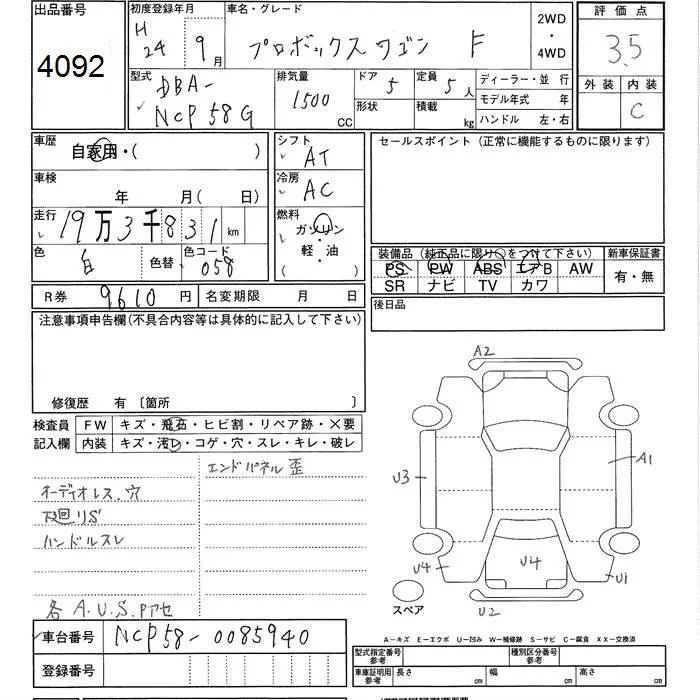 出品番号
4092
初度登録年月
H24年 9月
車名・グレード
プロボックスワゴン F
2WD
・
4WD
評価点
3.5
外装 内装
C
型式
DBA-
NCP58G
排気量
1500 CC
ドア 5
形状
定員 5人
積載 kg
ディーラー・並行
モデル年式 年
ハンドル 左・右
車歴
自家用・( )
シフト
AT
車検
年 月( 日)
冷房
AC
走行
19万3千831km
燃料
ガソリン
・
軽・油
( )
色
白
色替
色コード
058
R券 9610円
名変期限 月 日
セールスポイント(正常に機能するものに限ります)
装備品(純正品に限り○をつけて下さい)
PS PW ABS エアB AW
SR ナビ TV カワ
新車保証書
有・無
後日品
注意事項申告欄(不具合内容等は具体的に記入して下さい)
修復歴 有〔箇所 〕
検査員
記入欄
FW キズ・飛石・ヒビ割・リペア跡・×要
内装 キズ・汚レ・コゲ・穴・スレ・キレ・破レ
エンドパネル歪
オーディオレス、穴
下廻りS
ハンドルスレ
各A.U.S.Pアセ
車台番号 NCP58-0085940
登録番号
A2
U3
A1
U4
U4
U1
U2
スペア
A-キズ E-エクボ U-凹み W-補修跡 S-サビ C-腐食 XX-交換済
型式指定番号
参考
種別区分番号
参考
車庫証明用
参考
長さ cm 幅 cm 高さ cm